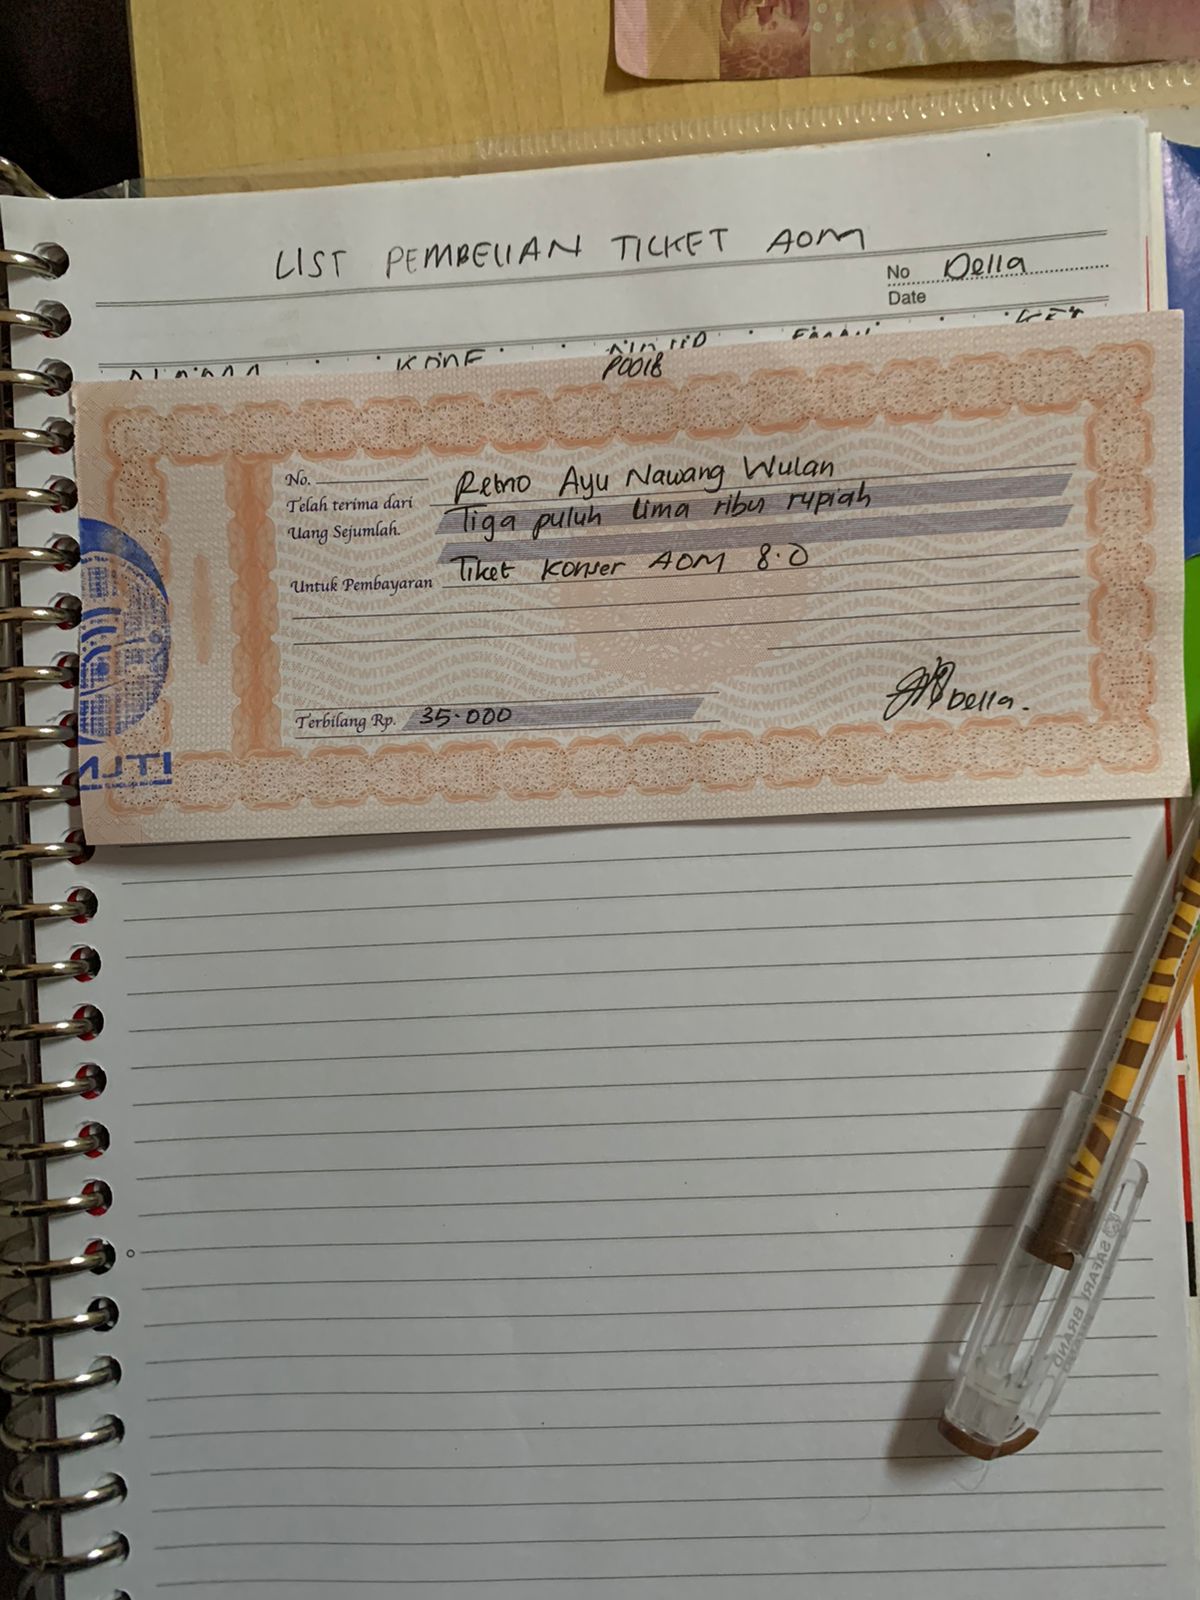 LIST PEMBELIAN TICKET AOM
No Della
Date
P0018
No.
Telah terima dari Retno Ayu Nawang Wulan
Uang Sejumlah. Tiga puluh lima ribu rupiah
Untuk Pembayaran Tiket Konser AOM 8.0
Terbilang Rp. 35.000
Della.
SAFARI BRAND